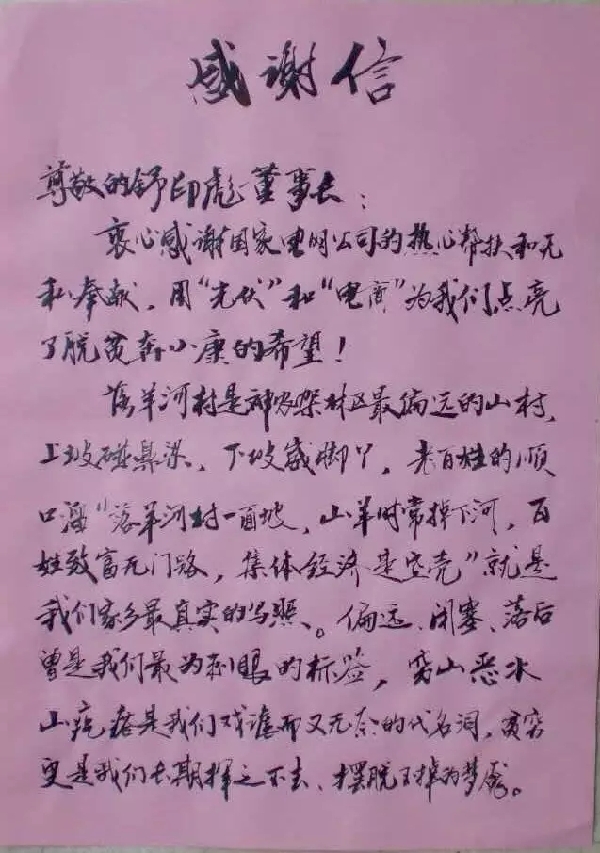 感谢信
尊敬的舒印彪董事长：
衷心感谢国家电网公司的热心帮扶和无
私奉献，用“光伏”和“电商”为我们点亮
了脱贫奔小康的希望！
落羊河村是神农架林区最偏远的山村，
上坡碰鼻梁、下坡戳脚丫，老百姓的顺
口溜“落羊河村一面坡，山羊时常掉下河，百
姓致富无门路，集体经济是空壳”就是
我们家乡最真实的写照。偏远、闭塞、落后
曾是我们最为刺眼的标签，穷山恶水
山旮旯是我们戏谑而又无奈的代名词，贫穷
更是我们长期挥之不去、摆脱不掉的梦魇。